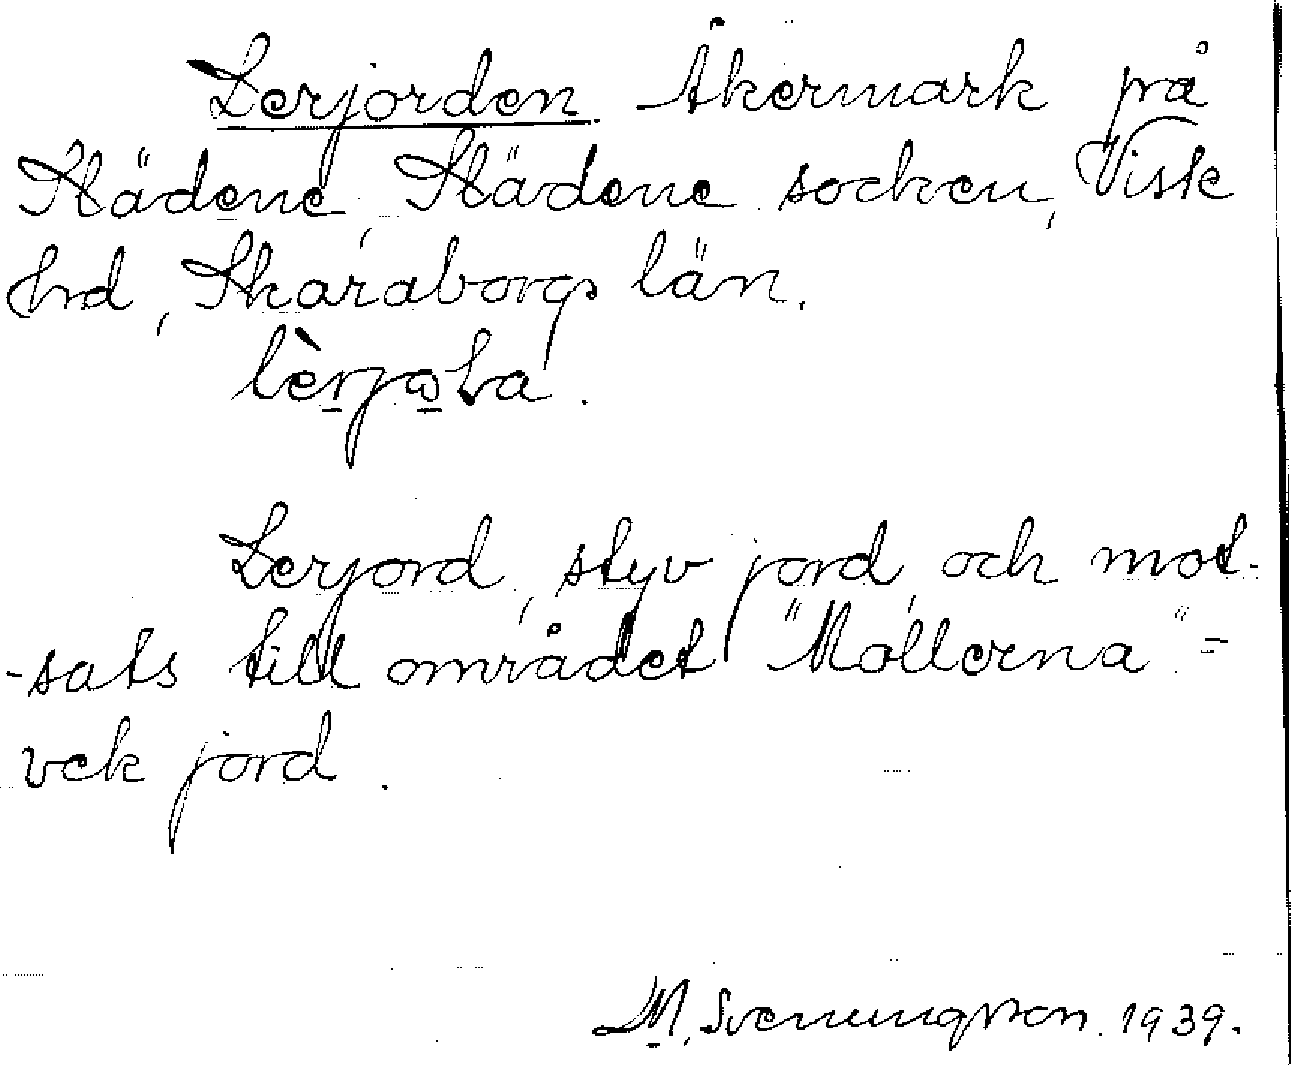 Lerjorden. Åkermark på
Slädene, Slädene socken, Viste
hd, Skaraborgs län.
Lerjord, styv jord, och mot-
-sats till området "Mollerna" -
vek jord.
M. Svenungsson. 1939.